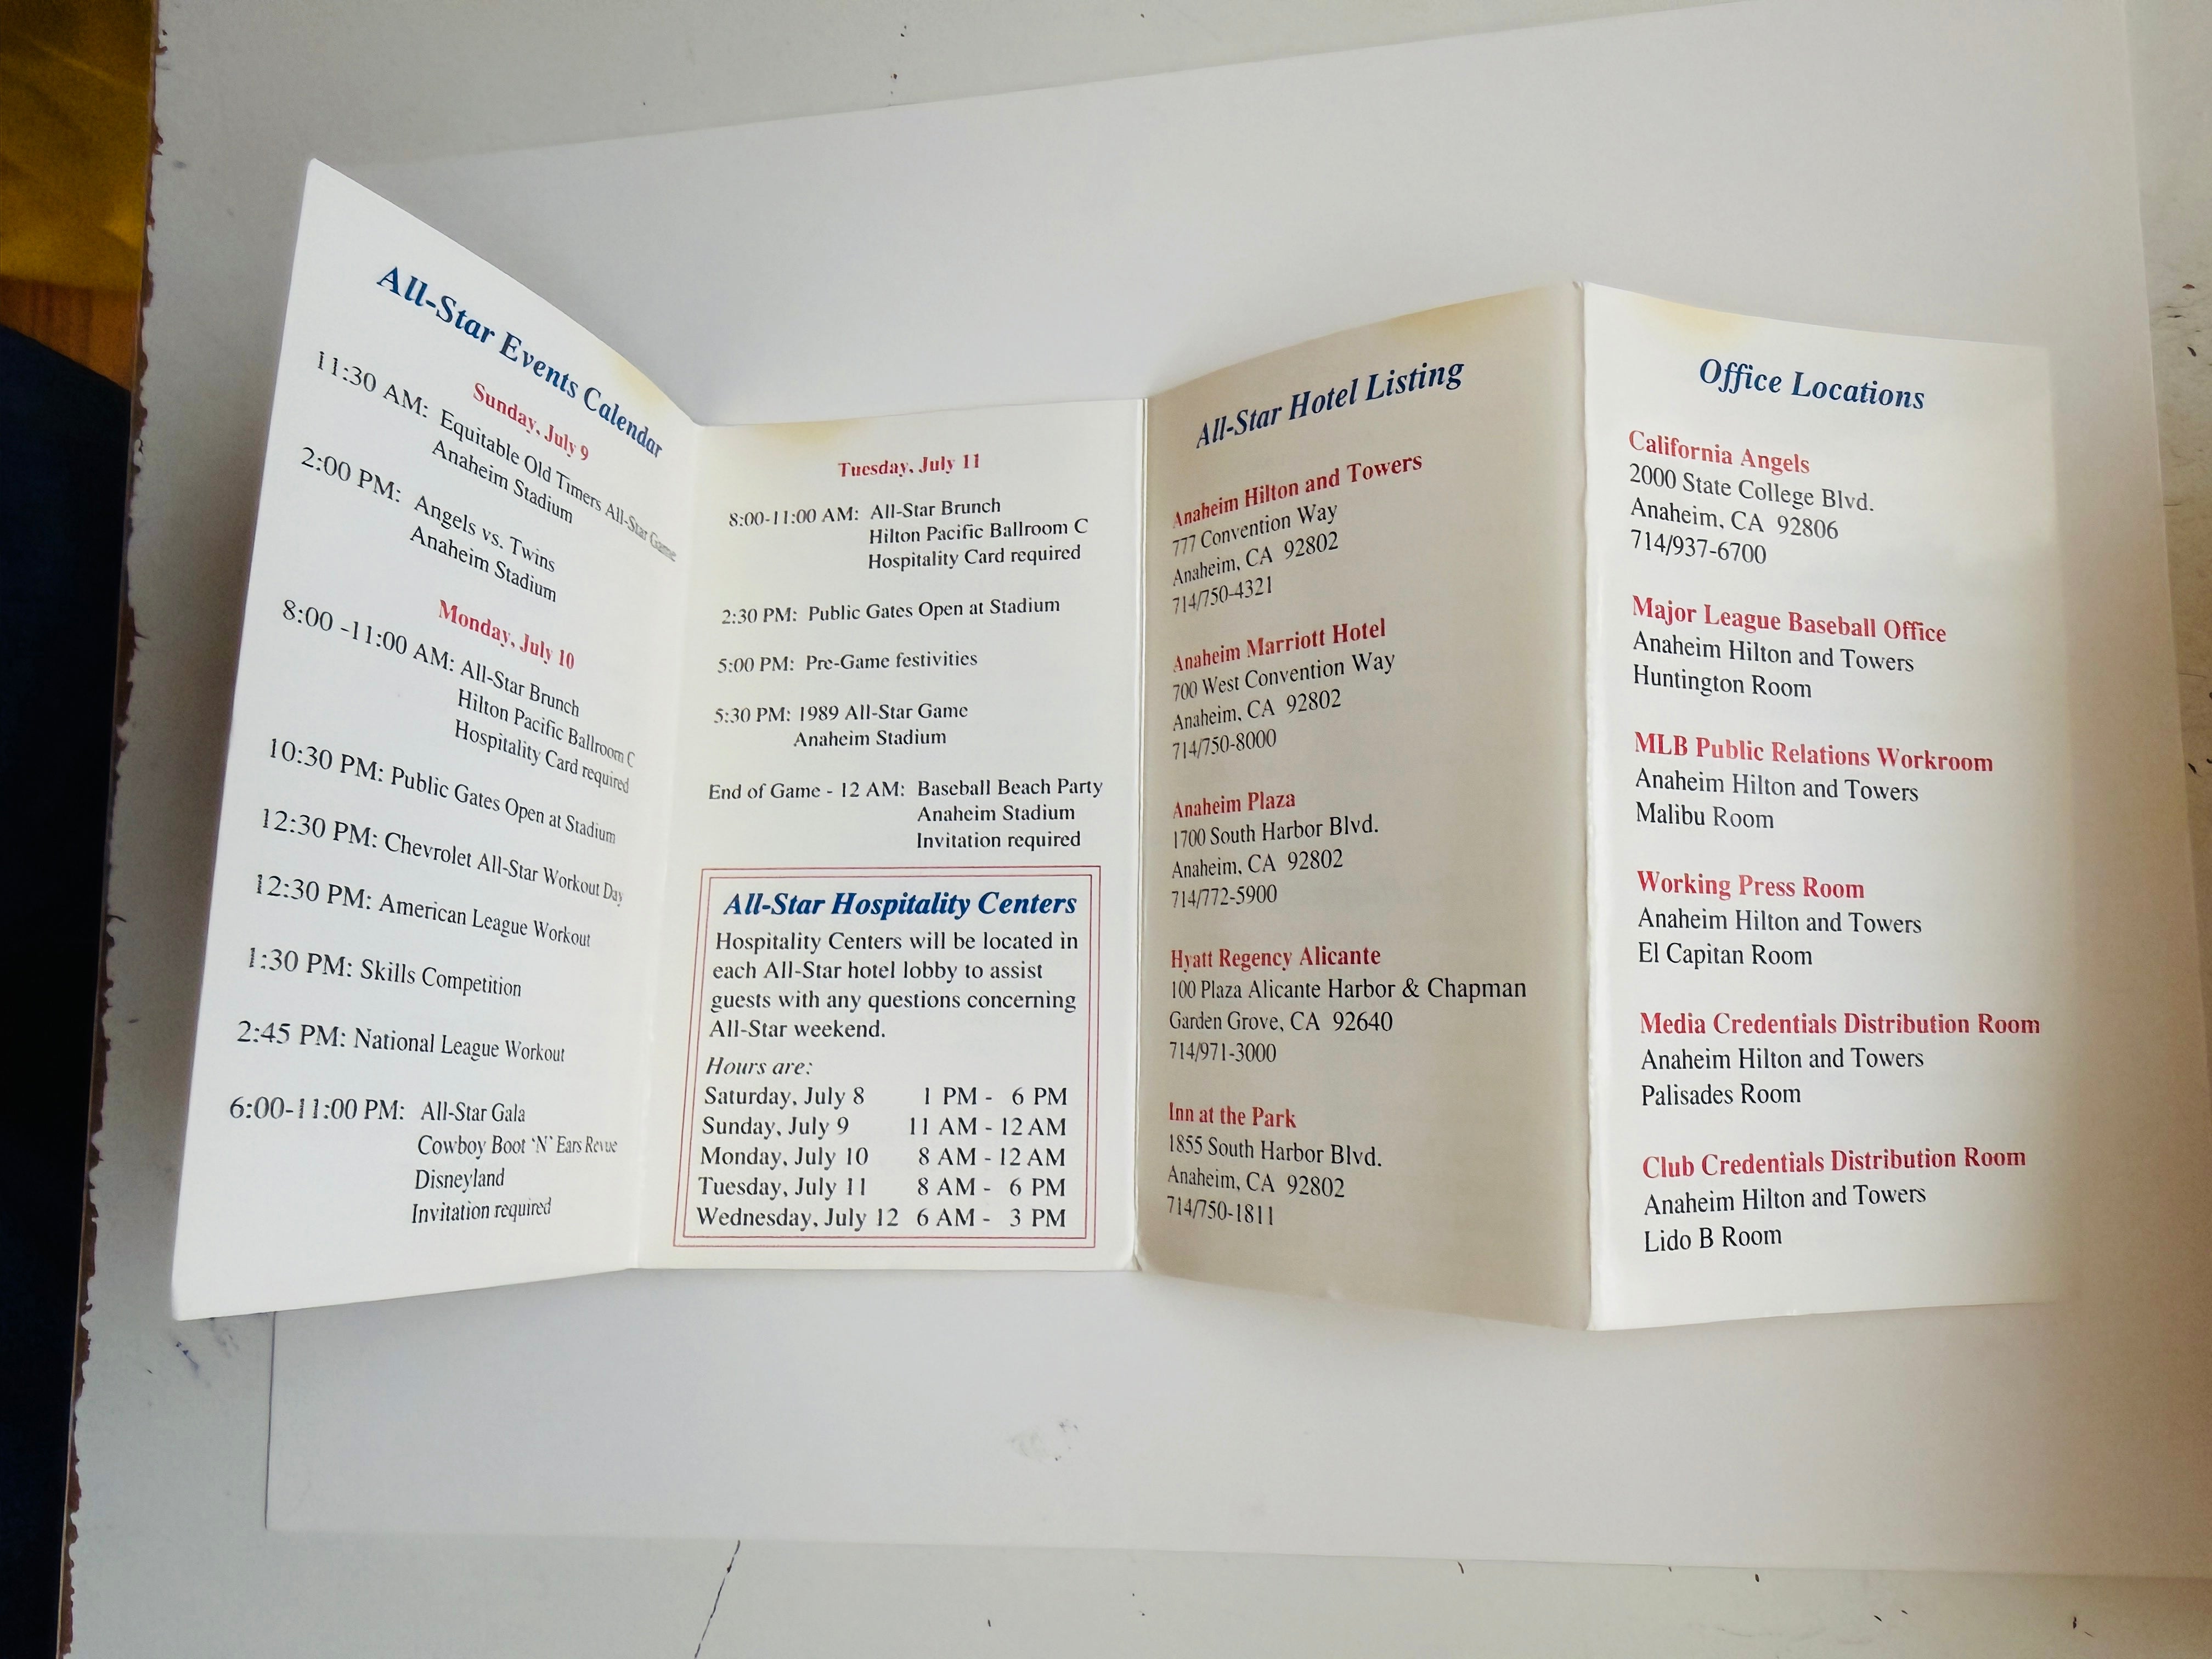 All-Star Events Calendar
Sunday, July 9
11:30 AM: Equitable Old Timers All-Star Game
Anaheim Stadium
2:00 PM: Angels vs. Twins
Anaheim Stadium
Monday, July 10
8:00 -11:00 AM: All-Star Brunch
Hilton Pacific Ballroom C
Hospitality Card required
10:30 PM: Public Gates Open at Stadium
12:30 PM: Chevrolet All-Star Workout Day
12:30 PM: American League Workout
1:30 PM: Skills Competition
2:45 PM: National League Workout
6:00-11:00 PM: All-Star Gala
Cowboy Boot 'N' Ears Revue
Disneyland
Invitation required
Tuesday, July 11
8:00-11:00 AM: All-Star Brunch
Hilton Pacific Ballroom C
Hospitality Card required
2:30 PM: Public Gates Open at Stadium
5:00 PM: Pre-Game festivities
5:30 PM: 1989 All-Star Game
Anaheim Stadium
End of Game - 12 AM: Baseball Beach Party
Anaheim Stadium
Invitation required
All-Star Hospitality Centers
Hospitality Centers will be located in
each All-Star hotel lobby to assist
guests with any questions concerning
All-Star weekend.
Hours are:
Saturday, July 8 1 PM - 6 PM
Sunday, July 9 11 AM - 12 AM
Monday, July 10 8 AM - 12 AM
Tuesday, July 11 8 AM - 6 PM
Wednesday, July 12 6 AM - 3 PM
All-Star Hotel Listing
Anaheim Hilton and Towers
777 Convention Way
Anaheim, CA 92802
714/750-4321
Anaheim Marriott Hotel
700 West Convention Way
Anaheim, CA 92802
714/750-8000
Anaheim Plaza
1700 South Harbor Blvd.
Anaheim, CA 92802
714/772-5900
Hyatt Regency Alicante
100 Plaza Alicante Harbor & Chapman
Garden Grove, CA 92640
714/971-3000
Inn at the Park
1855 South Harbor Blvd.
Anaheim, CA 92802
714/750-1811
Office Locations
California Angels
2000 State College Blvd.
Anaheim, CA 92806
714/937-6700
Major League Baseball Office
Anaheim Hilton and Towers
Huntington Room
MLB Public Relations Workroom
Anaheim Hilton and Towers
Malibu Room
Working Press Room
Anaheim Hilton and Towers
El Capitan Room
Media Credentials Distribution Room
Anaheim Hilton and Towers
Palisades Room
Club Credentials Distribution Room
Anaheim Hilton and Towers
Lido B Room